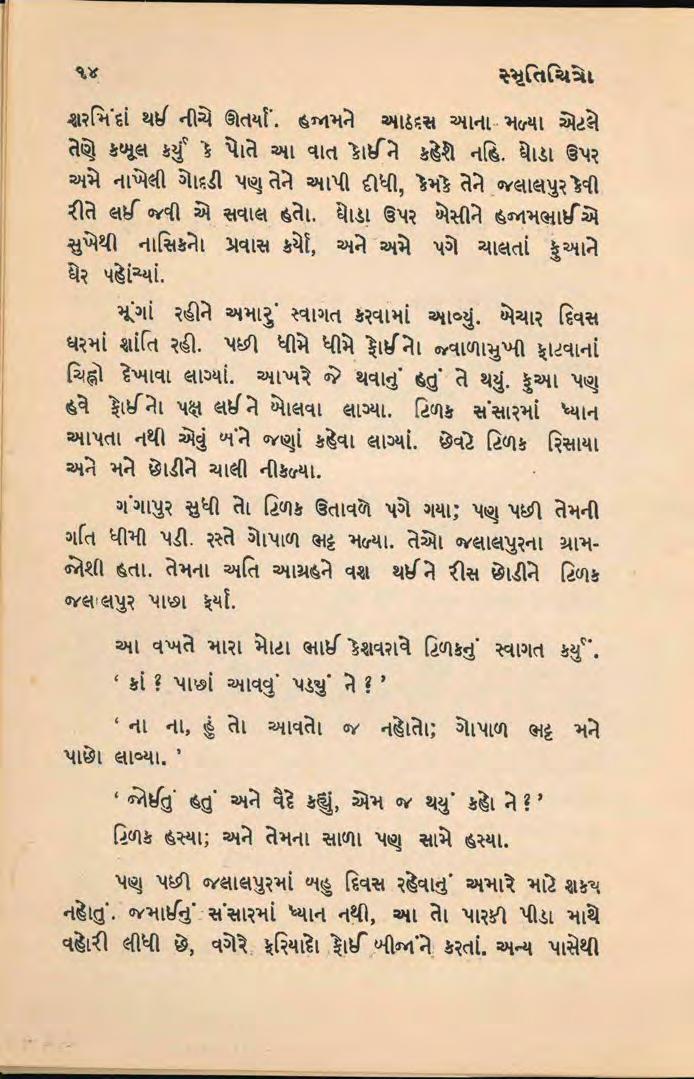 ૧૪ સ્મૃતિચિત્રો
શરમિંદાં થઈ નીચે ઊતર્યાં. હજામને આઠદસ આના મળ્યા એટલે
તેણે કબૂલ કર્યું કે પોતે આ વાત કોઈને કહેશે નહિ. ઘોડા ઉપર
અમે નાખેલી ગોદડી પણ તેને આપી દીધી, કેમકે તેને જલાલપુર કેવી
રીતે લઈ જવી એ સવાલ હતો. ઘોડા ઉપર બેસીને હજામભાઈએ
સુખેથી નાસિકનો પ્રવાસ કર્યો, અને અમે પગે ચાલતાં ફૂઆને
ઘેર પહોંચ્યાં.
મૂંગાં રહીને અમારું સ્વાગત કરવામાં આવ્યું. બેચાર દિવસ
ઘરમાં શાંતિ રહી. પછી ધીમે ધીમે ફોઈનો જ્વાળામુખી ફાટવાનાં
ચિહ્નો દેખાવા લાગ્યાં. આખરે જે થવાનું હતું તે થયું. ફુઆ પણ
હવે ફોઈનો પક્ષ લઈને બોલવા લાગ્યા. ટિળક સંસારમાં ધ્યાન
આપતા નથી એવું બંને જણાં કહેવા લાગ્યાં. છેવટે ટિળક રિસાયા
અને મને છોડીને ચાલી નીકળ્યા.
ગંગાપુર સુધી તો ટિળક ઉતાવળે પગે ગયા; પણ પછી તેમની
ગતિ ધીમી પડી. રસ્તે ગોપાળ ભટ્ટ મળ્યા. તેઓ જલાલપુરના ગ્રામ-
જોશી હતા. તેમના અતિ આગ્રહને વશ થઈને રીસ છોડીને ટિળક
જલાલપુર પાછા ફર્યા.
આ વખતે મારા મોટા ભાઈ કેશવરાવે ટિળકનું સ્વાગત કર્યું.
‘ કાં ? પાછાં આવવું પડ્યું ને ? ’
‘ ના ના, હું તો આવતો જ નહોતો; ગોપાળ ભટ્ટ મને
પાછો લાવ્યા. ’
‘ જોઈતું હતું અને વૈદે કહ્યું, એમ જ થયું કહો ને ? ’
ટિળક હસ્યા; અને તેમના સાળા પણ સામે હસ્યા.
પણ પછી જલાલપુરમાં બહુ દિવસ રહેવાનું અમારે માટે શક્ય
નહોતું. જમાઈનું સંસારમાં ધ્યાન નથી, આ તો પારકી પીડા માથે
વહોરી લીધી છે, વગેરે ફરિયાદો ફોઈ બીજાંને કરતાં. અન્ય પાસેથી